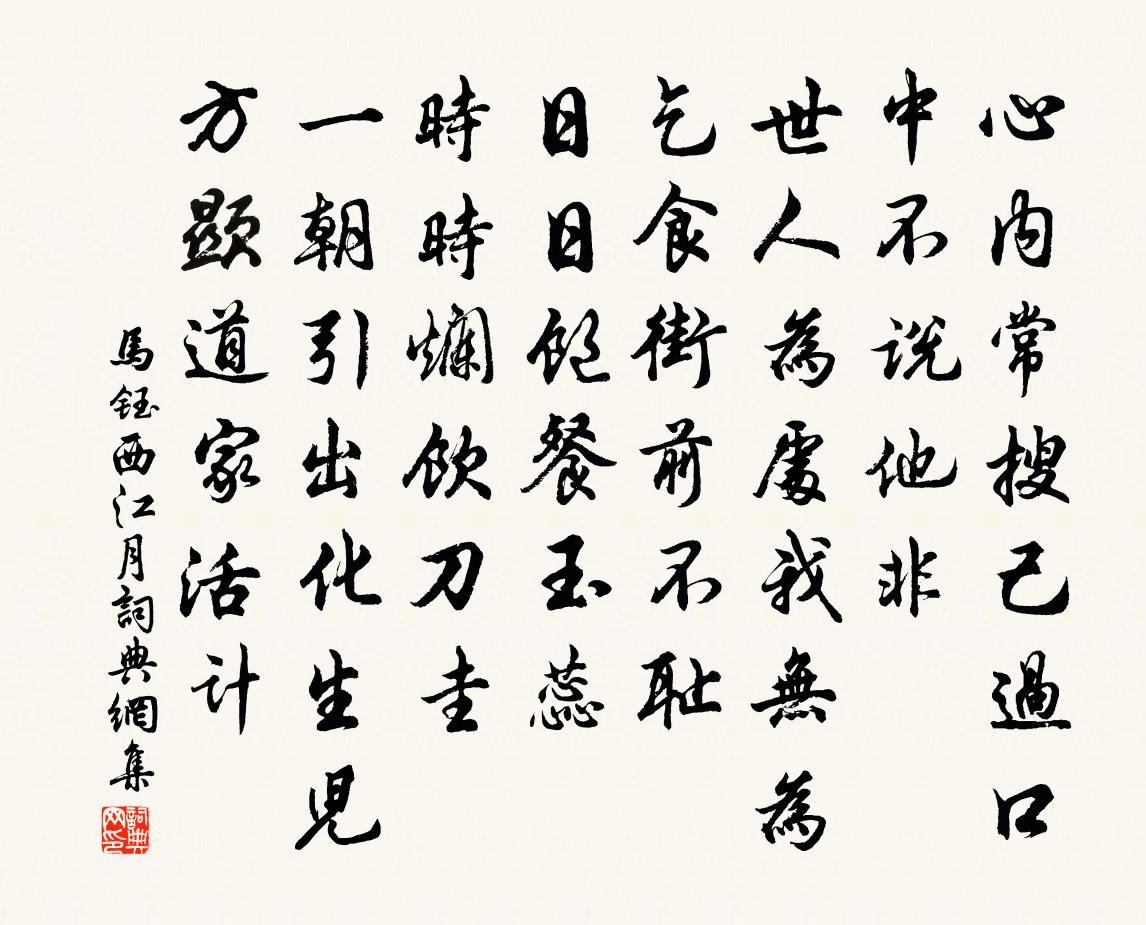 心內常搜己過口
中不說他非
世人為處我無為
乞食街前不恥
日日飽餐玉蕊
時時爛飲刀圭
一朝引出化生兒
方顯道家活計
馬鈺西江月詞典網集
詞典網印